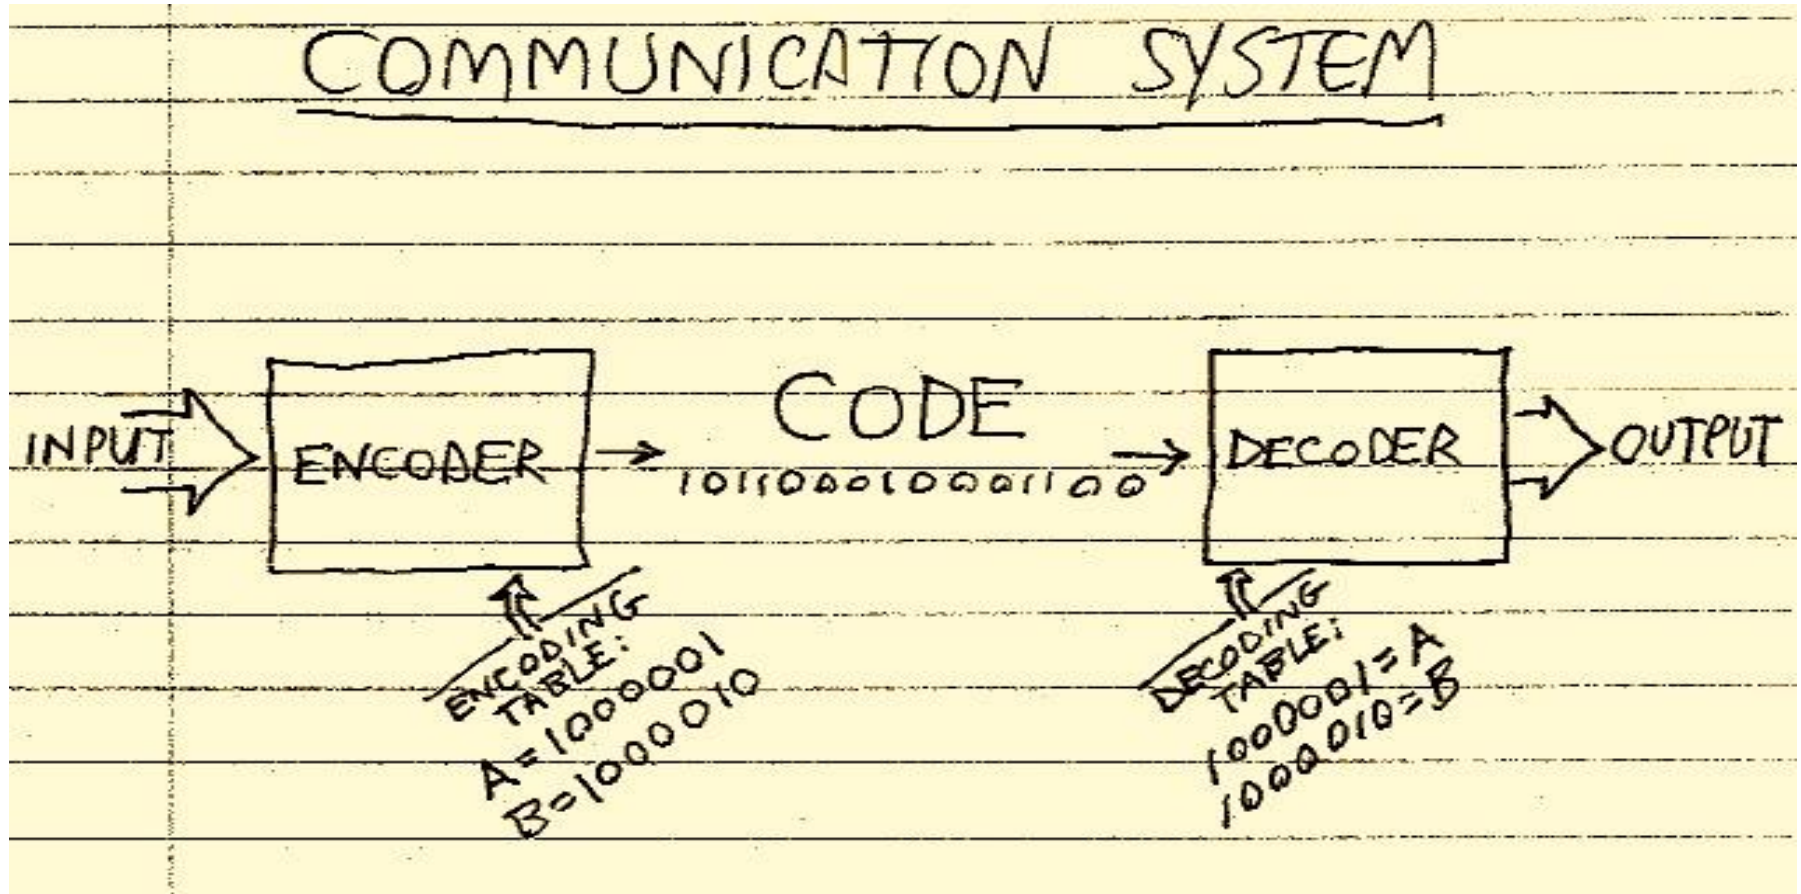 COMMUNICATION SYSTEM
INPUT
ENCODER
CODE
101100010001100
DECODER
OUTPUT
ENCODING
TABLE:
A=1000001
B=1000010
DECODING
TABLE:
1000001=A
1000010=B